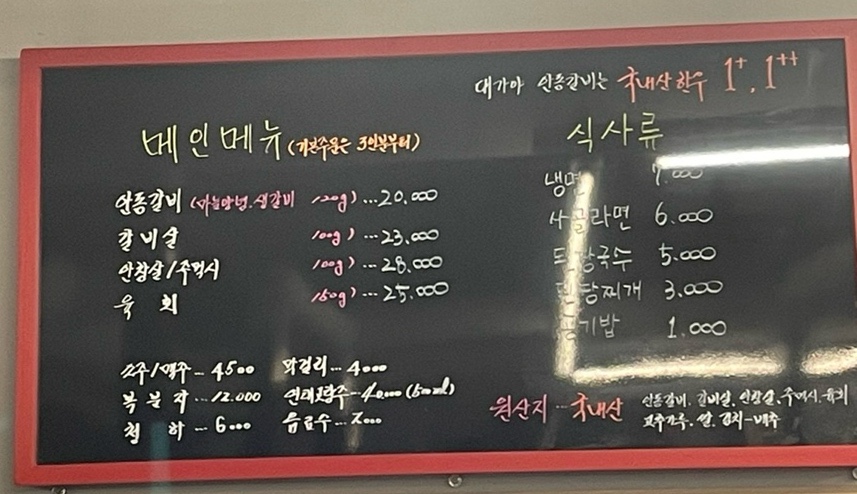 대가야 안동갈비는 국내산한우 1+, 1++
메인메뉴 (기본주문은 3인분부터)
안동갈비 (마늘양념.생갈비 120g) ...20.000
갈비살 100g) ...23.000
안창살/주먹시 100g) ...28.000
육 회 150g) ...25.000
소주/맥주 ... 4500
복분자 ... 12.000
청 하 ... 6000
막걸리 ... 4000
음료수 ... 2000
식사류
냉면 7.000
사골라면 6.000
된장국수 5.000
된장찌개 3.000
공기밥 1.000
원산지 ... 국내산
안동갈비, 갈비살, 안창살, 주먹시, 육회
고추가루, 쌀, 김치-배추